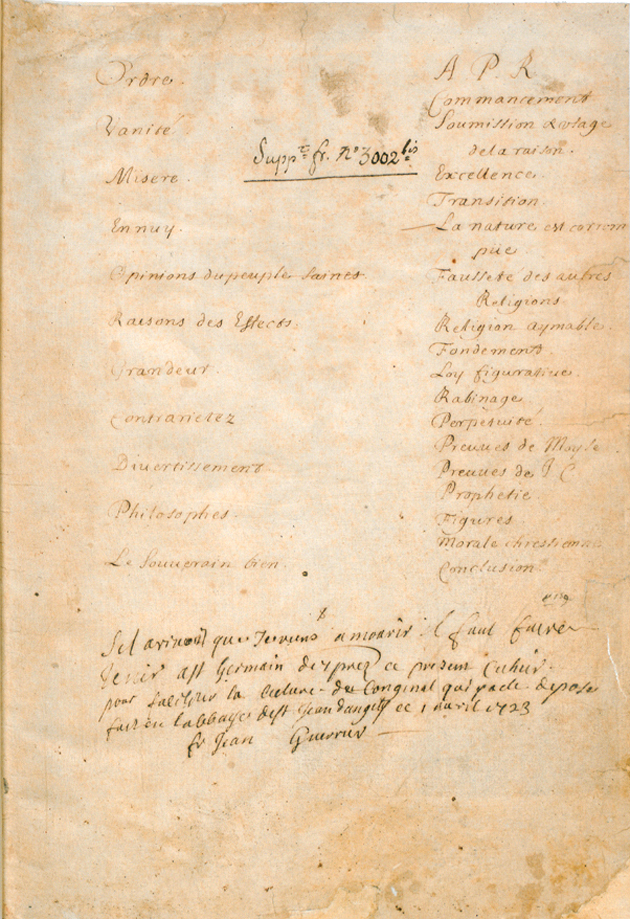 Ordre.
Vanité
Misere.
Ennuy.
Opinions du peuple saines.
Raisons des Effects.
Grandeur.
Contrarietez
Divertissement
Philosophes.
Le Souverain bien.
Suppt. fr. no 3002 bis
A P. R.
Commancement
Soumission & usage
de la raison.
Excellence.
Transition.
La nature est corrom
püe
Fausseté des autres
Religions
Religion aymable.
Fondements.
Loy figuratiue.
Rabinage
Perpetuité.
Preuues de Moyse.
Preuues de J C
Prophetie.
Figures
Morale chrestienne
Conclusion.
S'il arivoit que je viens a mourir il faut faire
tenir a St Germain des prez ce present cahier
pour faliciter la lecture de l'original qui y a de depose
fait en l'abbaye de St Jean d'angely ce 1 avril 1723
fr Jean Guerrier